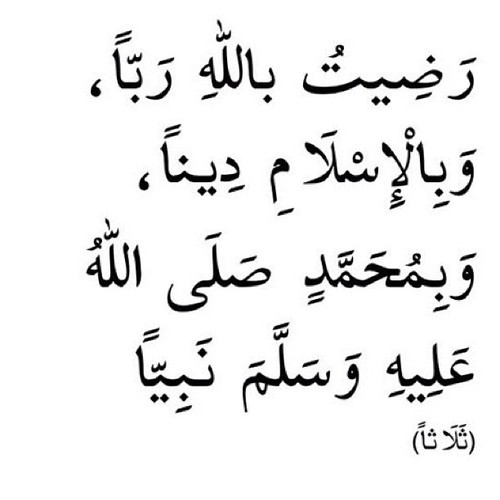 رَضِيتُ بِاللَّهِ رَبًّا،
وَبِالْإِسْلَامِ دِينًا،
وَبِمُحَمَّدٍ صَلَى اللهُ
عَلِيهِ وَسَلَّمَ نَبِيًّا
(ثَلَاثاً)